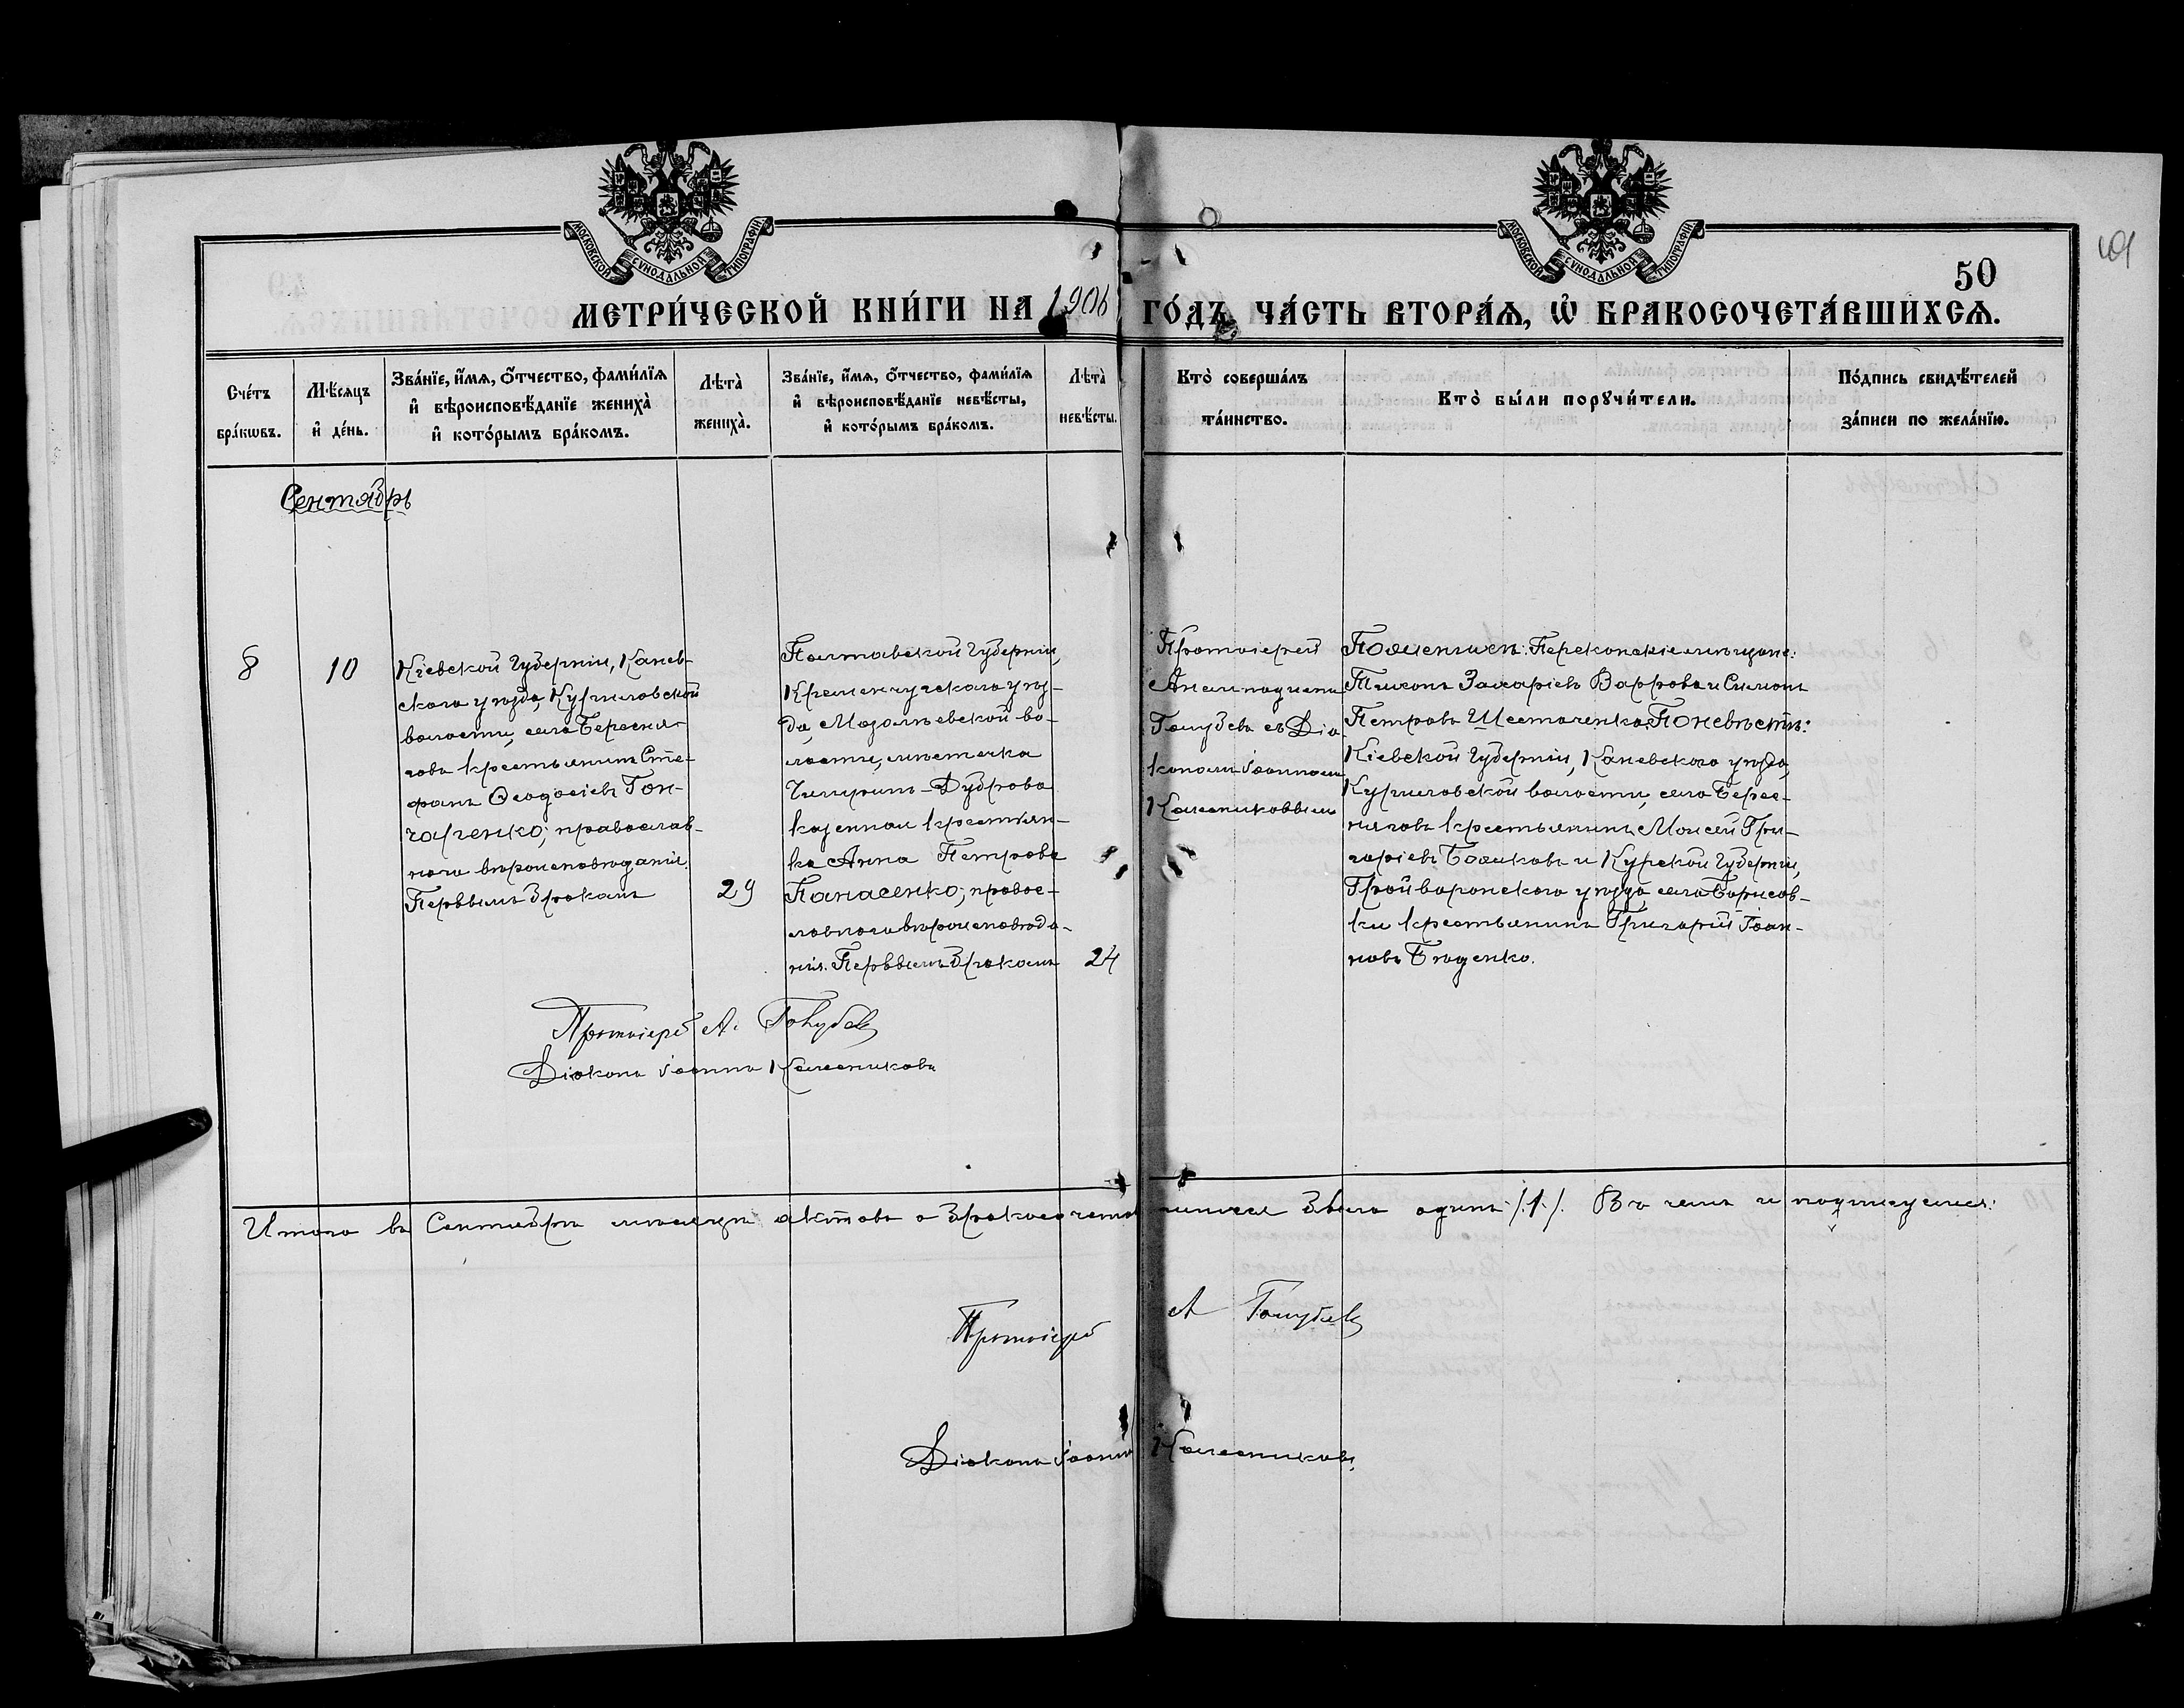 МОСКОВСКОЙ СѴНОДАЛЬНОЙ ТИПОГРАФІИ
МОСКОВСКОЙ СѴНОДАЛЬНОЙ ТИПОГРАФІИ
50
МЕТРИ́ЧЕСКОЙ КНИ́ГИ НА 1906 ГО́ДЪ, ЧА́СТЬ ВТОРА́Я, Ѡ БРАКОСОЧЕТА́ВШИХСЯ.
Сче́тъ
бра́кѡвъ.
Мѣ́сяцъ
и де́нь.
Зва́нїе, и́мя, о́тчество, фами́лїя
и вѣроисповѣ́данїе жениха̀
и кото́рымъ бра́комъ.
Лѣта̀
жениха̀.
Зва́нїе, и́мя, о́тчество, фами́лїя
и вѣроисповѣ́данїе невѣ́сты,
и кото́рымъ бра́комъ.
Лѣта̀
невѣ́сты.
Кто̀ соверша́лъ
та́инство.
Кто̀ бы́ли порꙋчи́тели.
По́дпись свидѣ́телей
за́писи по жела́нїю.
Сентябрь
8
10
Кіевской Губерніи, Канев-
скаго уѣзда, Куриловской
волости, села Береснях-
говъ крестьянинъ Сте-
фанъ Ѳеодосіевъ Гон-
чаренко; православ-
наго вѣроисповѣданія.
Первымъ бракомъ
29
Полтавской Губерніи,
Кременчугскаго уѣз-
да, Мозолѣевской во-
лости, мѣстечка
Чигиринъ-Дуброва
казенная крестьян-
ка Анна Петрова
Панасенко; правос-
лавнаго вѣроисповѣда-
нія. Первымъ бракомъ
24
Протоіерей
Голубевъ съ Діа-
кономъ Іоанномъ
Колесниковымъ
По женихѣ: Перекопскіе мѣщане:
Тихонъ Захаріевъ и Симонъ
Петровъ Шестаченко. По невѣстѣ:
Кіевской Губерніи, Каневскаго уѣзда,
Куриловской волости, села Берес-
няговъ крестьянинъ Моисей Гри-
горіевъ и Курской Губерніи,
Грайворонскаго уѣзда, села Борисов-
ки крестьянинъ Григорій Іоан-
новъ
Протоіерей А. Голубевъ
Діаконъ Іоаннъ Колесниковъ
Итого въ Сентябрѣ мѣсяцѣ актовъ о бракосочетавшихся было одинъ /1/. Въ чемъ и подписуемся:
Протоіерей А Голубевъ
Діаконъ Іоаннъ Колесниковъ